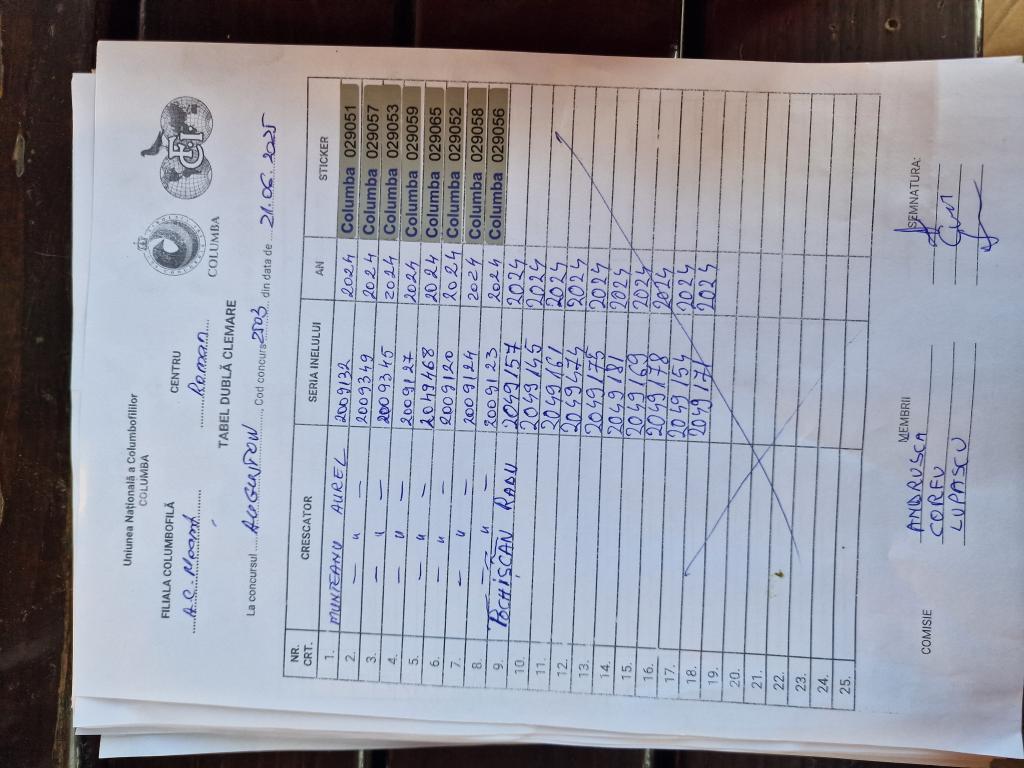 Uniunea Națională a Columbofililor
COLUMBA
COLUMBA
FCI
FILIALA COLUMBOFILĂ
CENTRU
A.S. Neamț
Roman
TABEL DUBLĂ CLEMARE
La concursul AUGUSTOW, Cod concurs 2503 din data de 21.06.2025
NR. CRT. CRESCATOR SERIA INELULUI AN STICKER
1. MUNTEANU AUREL 2009132 2024 Columba 029051
2. — u — 2009349 2024 Columba 029057
3. — u — 2009345 2024 Columba 029053
4. — u — 2009127 2024 Columba 029059
5. — u — 2049168 2024 Columba 029065
6. — u — 2009120 2024 Columba 029052
7. — u — 2009124 2024 Columba 029058
8. — u — 2009123 2024 Columba 029056
9. RADU 2049157 2024
10. 2049145 2024
11. 2049161 2024
12. 2049474 2024
13. 2049175 2024
14. 2049181 2024
15. 2049169 2024
16. 2049178 2024
17. 2049154 2024
18. 2049171 2024
19.
20.
21.
22.
23.
24.
25.
COMISIE MEMBRII SEMNATURA:
ANDRUSCA
CORFU
LUPASCU